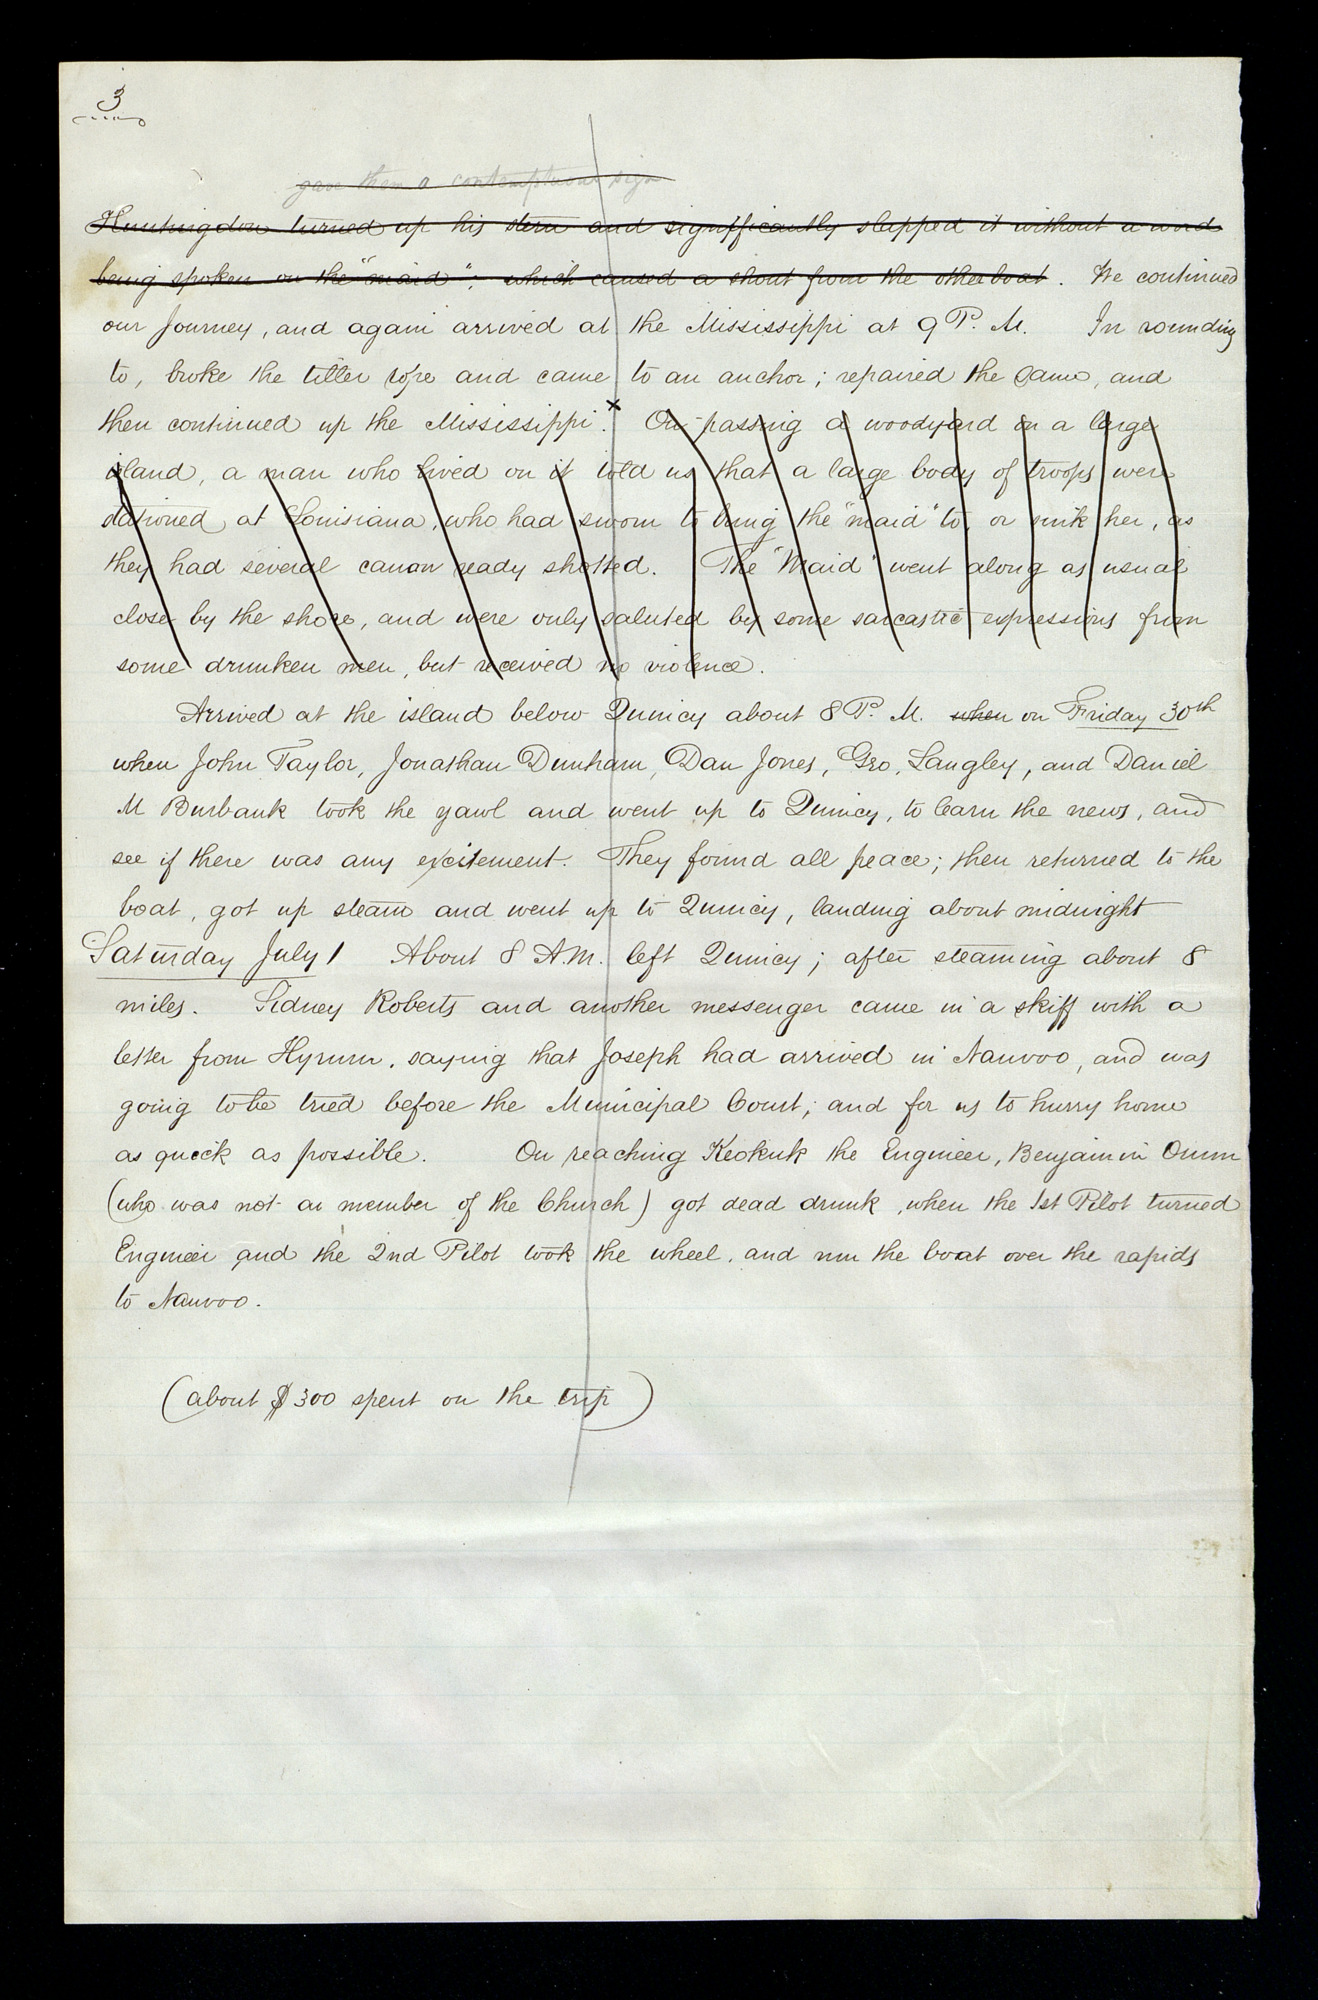 3
gave them a contemptuous sign
Huntingdon turned up his stern and significantly slapped it without a word
being spoken on the "maid"; which caused a shout from the other boat. We continued
our Journey, and again arrived at the Mississippi at 9 P. M. In rounding
to, broke the tiller rope and came to an anchor; repaired the same, and
then continued up the Mississippi. x On passing a woodyard on a large
island, a man who lived on it told us that a large body of troops were
stationed at Louisiana, who had sworn to bring the "maid" to, or sink her, as
they had several canon ready shotted. The "Maid" went along as usual
close by the shore, and were only saluted by some sarcastic expressions from
some drunken men, but received no violence.
Arrived at the island below Quincy about 8 P. M. when on Friday 30th
when John Taylor, Jonathan Dunham, Dan Jones, Geo, Langley, and Daniel
M Burbank took the yawl and went up to Quincy, to learn the news, and
see if there was any excitement. They found all peace; then returned to the
boat, got up steam and went up to Quincy, landing about midnight
Saturday July 1 About 8 A.M. left Quincy; after steaming about 8
miles. Sidney Roberts and another messenger came in a skiff with a
letter from Hyrum, saying that Joseph had arrived in Nauvoo, and was
going to be tried before the Municipal Court; and for us to hurry home
as quick as possible. On reaching Keokuk the Engineer, Benjamin Orum
(who was not a member of the Church) got dead drunk, when the 1st Pilot turned
Engineer and the 2nd Pilot took the wheel, and run the boat over the rapids
to Nauvoo.
(about $300 spent on the trip)